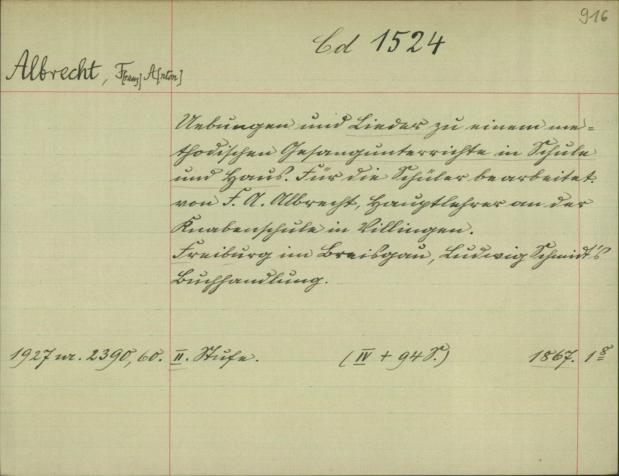 916
Cd 1524
Albrecht, F[ranz] A[nton]
Uebungen und Lieder zu einem me-
thodischen Gesangunterrichte in Schule
und Haus. Für die Schüler bearbeitet
von F. A. Albrecht, Hauptlehrer an der
Knabenschule in Villingen.
Freiburg im Breisgau, Ludwig Schmidt's
Buchhandlung.
1927 nr. 2390,60. II. Stufe. (IV + 94 S.) 1867. 1 8